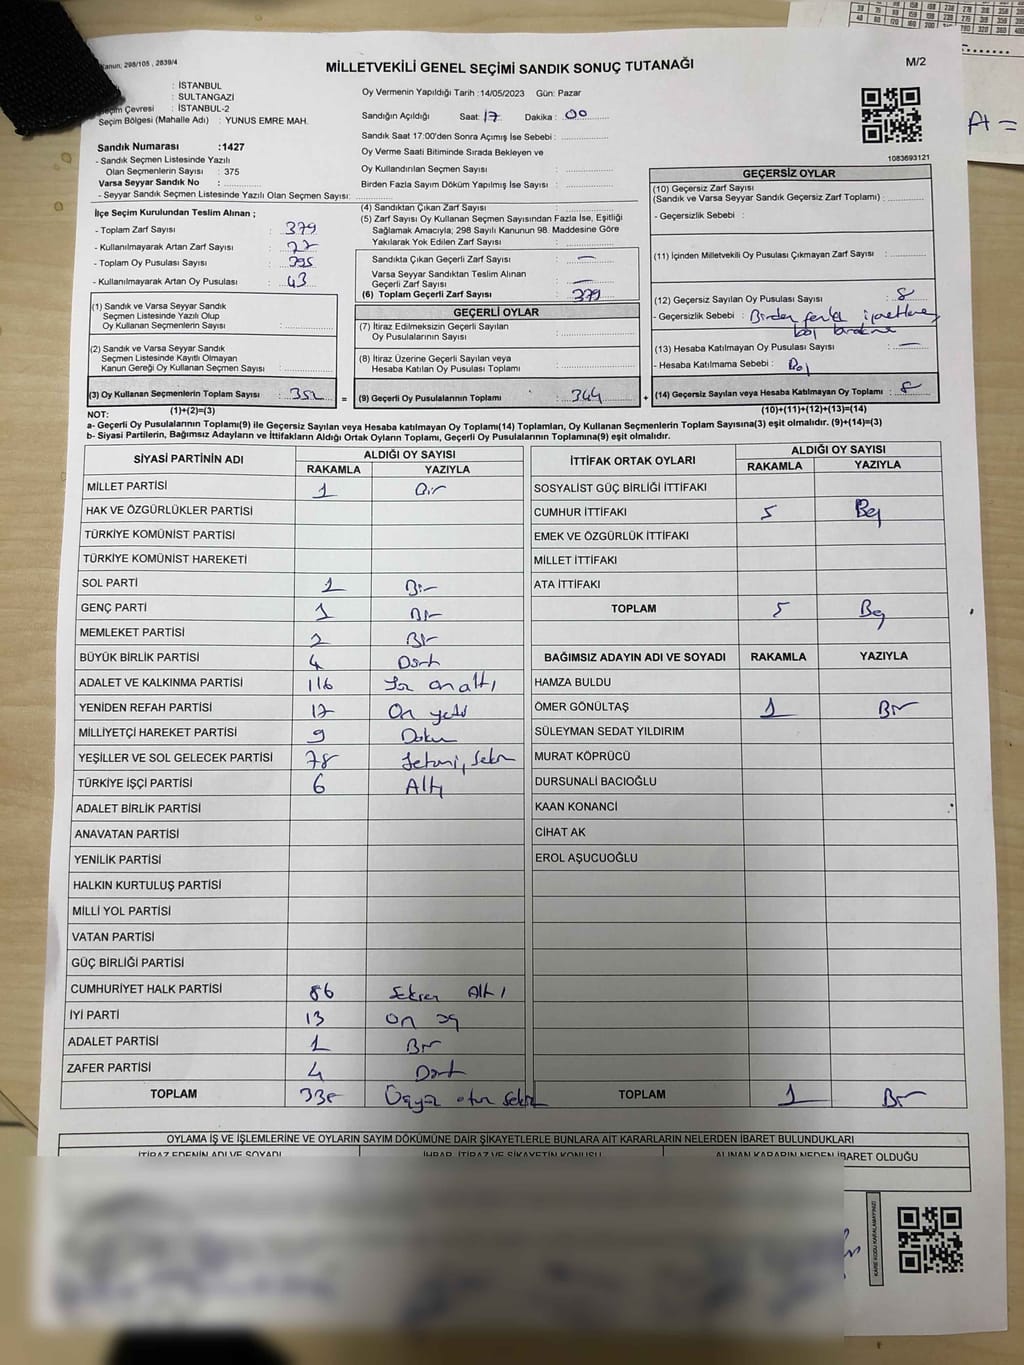 Kanun, 298/105 , 2839/4
MİLLETVEKİLİ GENEL SEÇİMİ SANDIK SONUÇ TUTANAĞI
M/2
: İSTANBUL
: SULTANGAZİ
Seçim Çevresi : İSTANBUL-2
Seçim Bölgesi (Mahalle Adı) : YUNUS EMRE MAH.
Oy Vermenin Yapıldığı Tarih :14/05/2023 Gün: Pazar
Sandığın Açıldığı Saat: 17 Dakika : 00
Sandık Saat 17:00'den Sonra Açımış İse Sebebi :
Oy Verme Saati Bitiminde Sırada Bekleyen ve
Oy Kullandırılan Seçmen Sayısı :
Birden Fazla Sayım Döküm Yapılmış İse Sayısı :
A =
1083693121
Sandık Numarası :1427
- Sandık Seçmen Listesinde Yazılı
Olan Seçmenlerin Sayısı : 375
Varsa Seyyar Sandık No :
- Seyyar Sandık Seçmen Listesinde Yazılı Olan Seçmen Sayısı:
İlçe Seçim Kurulundan Teslim Alınan ;
- Toplam Zarf Sayısı : 379
- Kullanılmayarak Artan Zarf Sayısı :
- Toplam Oy Pusulası Sayısı : 395
- Kullanılmayarak Artan Oy Pusulası : 43
(1) Sandık ve Varsa Seyyar Sandık
Seçmen Listesinde Yazılı Olup
Oy Kullanan Seçmenlerin Sayısı :
(2) Sandık ve Varsa Seyyar Sandık
Seçmen Listesinde Kayıtlı Olmayan
Kanun Gereği Oy Kullanan Seçmen Sayısı :
(3) Oy Kullanan Seçmenlerin Toplam Sayısı : 352 =
(1)+(2)=(3)
(4) Sandıktan Çıkan Zarf Sayısı :
(5) Zarf Sayısı Oy Kullanan Seçmen Sayısından Fazla İse, Eşitliği
Sağlamak Amacıyla; 298 Sayılı Kanunun 98. Maddesine Göre
Yakılarak Yok Edilen Zarf Sayısı :
Sandıkta Çıkan Geçerli Zarf Sayısı : —
Varsa Seyyar Sandıktan Teslim Alınan
Geçerli Zarf Sayısı : —
(6) Toplam Geçerli Zarf Sayısı : 379
GEÇERLİ OYLAR
(7) İtiraz Edilmeksizin Geçerli Sayılan
Oy Pusulalarının Sayısı :
(8) İtiraz Üzerine Geçerli Sayılan veya
Hesaba Katılan Oy Pusulası Toplamı :
(9) Geçerli Oy Pusulalarının Toplamı : 344 +
GEÇERSİZ OYLAR
(10) Geçersiz Zarf Sayısı
(Sandık ve Varsa Seyyar Sandık Geçersiz Zarf Toplamı) :
- Geçersizlik Sebebi :
(11) İçinden Milletvekili Oy Pusulası Çıkmayan Zarf Sayısı :
(12) Geçersiz Sayılan Oy Pusulası Sayısı : 8
- Geçersizlik Sebebi : Birden fazla
(13) Hesaba Katılmayan Oy Pusulası Sayısı : —
- Hesaba Katılmama Sebebi :
(14) Geçersiz Sayılan veya Hesaba Katılmayan Oy Toplamı : 8
(10)+(11)+(12)+(13)=(14)
NOT:
a- Geçerli Oy Pusulalarının Toplamı(9) ile Geçersiz Sayılan veya Hesaba katılmayan Oy Toplamı(14) Toplamları, Oy Kullanan Seçmenlerin Toplam Sayısına(3) eşit olmalıdır. (9)+(14)=(3)
b- Siyasi Partilerin, Bağımsız Adayların ve İttifakların Aldığı Ortak Oyların Toplamı, Geçerli Oy Pusulalarının Toplamına(9) eşit olmalıdır.
SİYASİ PARTİNİN ADI ALDIĞI OY SAYISI
RAKAMLA YAZIYLA
MİLLET PARTİSİ 1 Bir
HAK VE ÖZGÜRLÜKLER PARTİSİ
TÜRKİYE KOMÜNİST PARTİSİ
TÜRKİYE KOMÜNİST HAREKETİ
SOL PARTİ 1 Bir
GENÇ PARTİ 1 Bir
MEMLEKET PARTİSİ 2 Bir
BÜYÜK BİRLİK PARTİSİ 4 Dört
ADALET VE KALKINMA PARTİSİ 116 Yüz on altı
YENİDEN REFAH PARTİSİ 17 On yedi
MİLLİYETÇİ HAREKET PARTİSİ 9 Dokuz
YEŞİLLER VE SOL GELECEK PARTİSİ 78
TÜRKİYE İŞÇİ PARTİSİ 6 Altı
ADALET BİRLİK PARTİSİ
ANAVATAN PARTİSİ
YENİLİK PARTİSİ
HALKIN KURTULUŞ PARTİSİ
MİLLİ YOL PARTİSİ
VATAN PARTİSİ
GÜÇ BİRLİĞİ PARTİSİ
CUMHURİYET HALK PARTİSİ 86 Seksen Altı
İYİ PARTİ 13 On üç
ADALET PARTİSİ 1 Bir
ZAFER PARTİSİ 4 Dört
TOPLAM 338 Üçyüz otuz sekiz
İTTİFAK ORTAK OYLARI ALDIĞI OY SAYISI
RAKAMLA YAZIYLA
SOSYALİST GÜÇ BİRLİĞİ İTTİFAKI
CUMHUR İTTİFAKI 5 Beş
EMEK VE ÖZGÜRLÜK İTTİFAKI
MİLLET İTTİFAKI
ATA İTTİFAKI
TOPLAM 5 Beş
BAĞIMSIZ ADAYIN ADI VE SOYADI RAKAMLA YAZIYLA
HAMZA BULDU
ÖMER GÖNÜLTAŞ 1 Bir
SÜLEYMAN SEDAT YILDIRIM
MURAT KÖPRÜCÜ
DURSUNALİ BACIOĞLU
KAAN KONANCİ
CİHAT AK
EROL AŞUCUOĞLU
TOPLAM 1 Bir
OYLAMA İŞ VE İŞLEMLERİNE VE OYLARIN SAYIM DÖKÜMÜNE DAİR ŞİKAYETLERLE BUNLARA AİT KARARLARIN NELERDEN İBARET BULUNDUKLARI
İTİRAZ EDENİN ADI VE SOYADI İHBAR, İTİRAZ VE ŞİKAYETİN KONUSU ALINAN KARARIN NEDEN İBARET OLDUĞU
KARE KODU KARALAMAYINIZ!